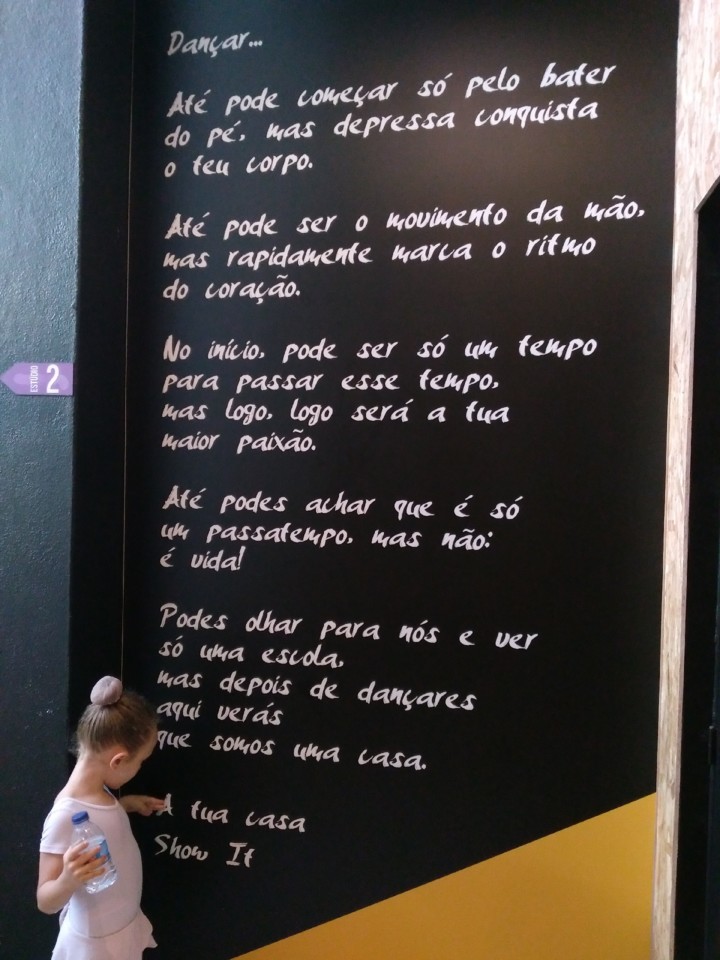 Dançar...
Até pode começar só pelo bater
do pé, mas depressa conquista
o teu corpo.
Até pode ser o movimento da mão,
mas rapidamente marca o ritmo
do coração.
No início, pode ser só um tempo
para passar esse tempo,
mas logo, logo será a tua
maior paixão.
Até podes achar que é só
um passatempo, mas não:
é vida!
Podes olhar para nós e ver
só uma escola,
mas depois de dançares
aqui verás
que somos uma casa.
A tua casa
Show It
ESTÚDIO 2